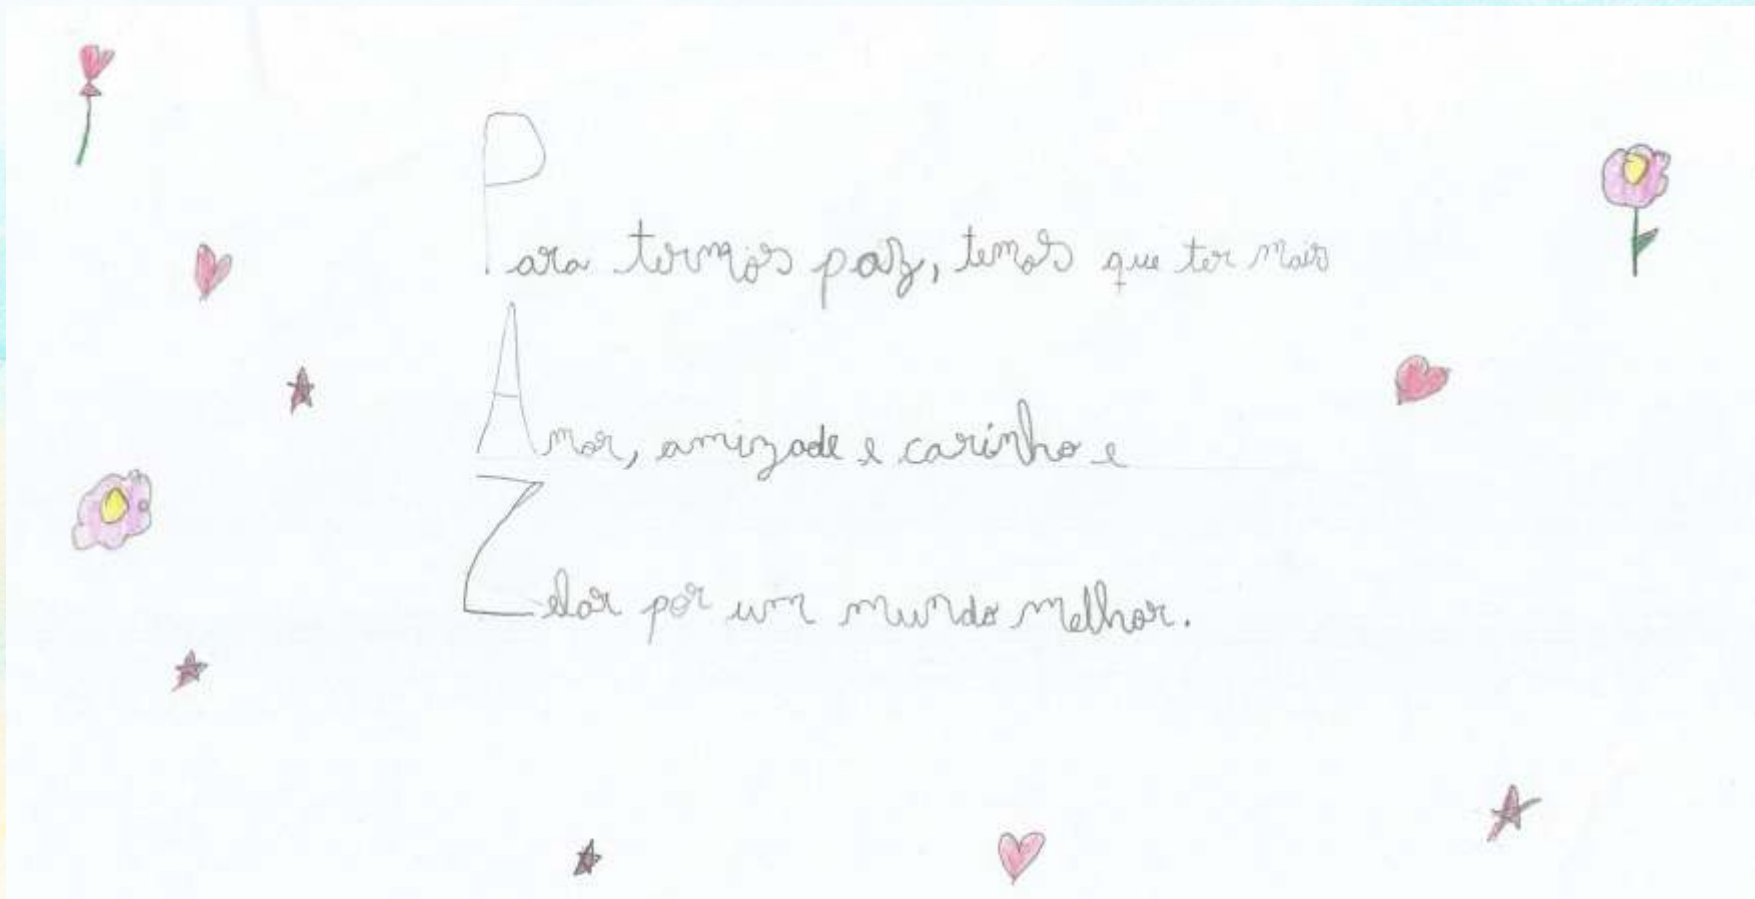 Para termos paz, temos que ter mais
Amor, amizade e carinho e
Zelar por um mundo melhor.